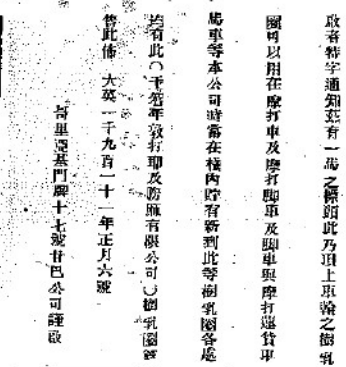 啟者特字通知茲有一馬之標頭此乃頂上車輪之樹乳
圈可以用在摩打車及摩打脚車及脚車與摩打運貨車
馬車等本公司時常在棧內貯有新到此等樹乳圈各處
均有此〇干
年敦打聊及
有限公司〇樹乳圈
售此佈 大英一千九百一十一年正月六號
哥里亞基門牌十七號廿巴公司謹啟